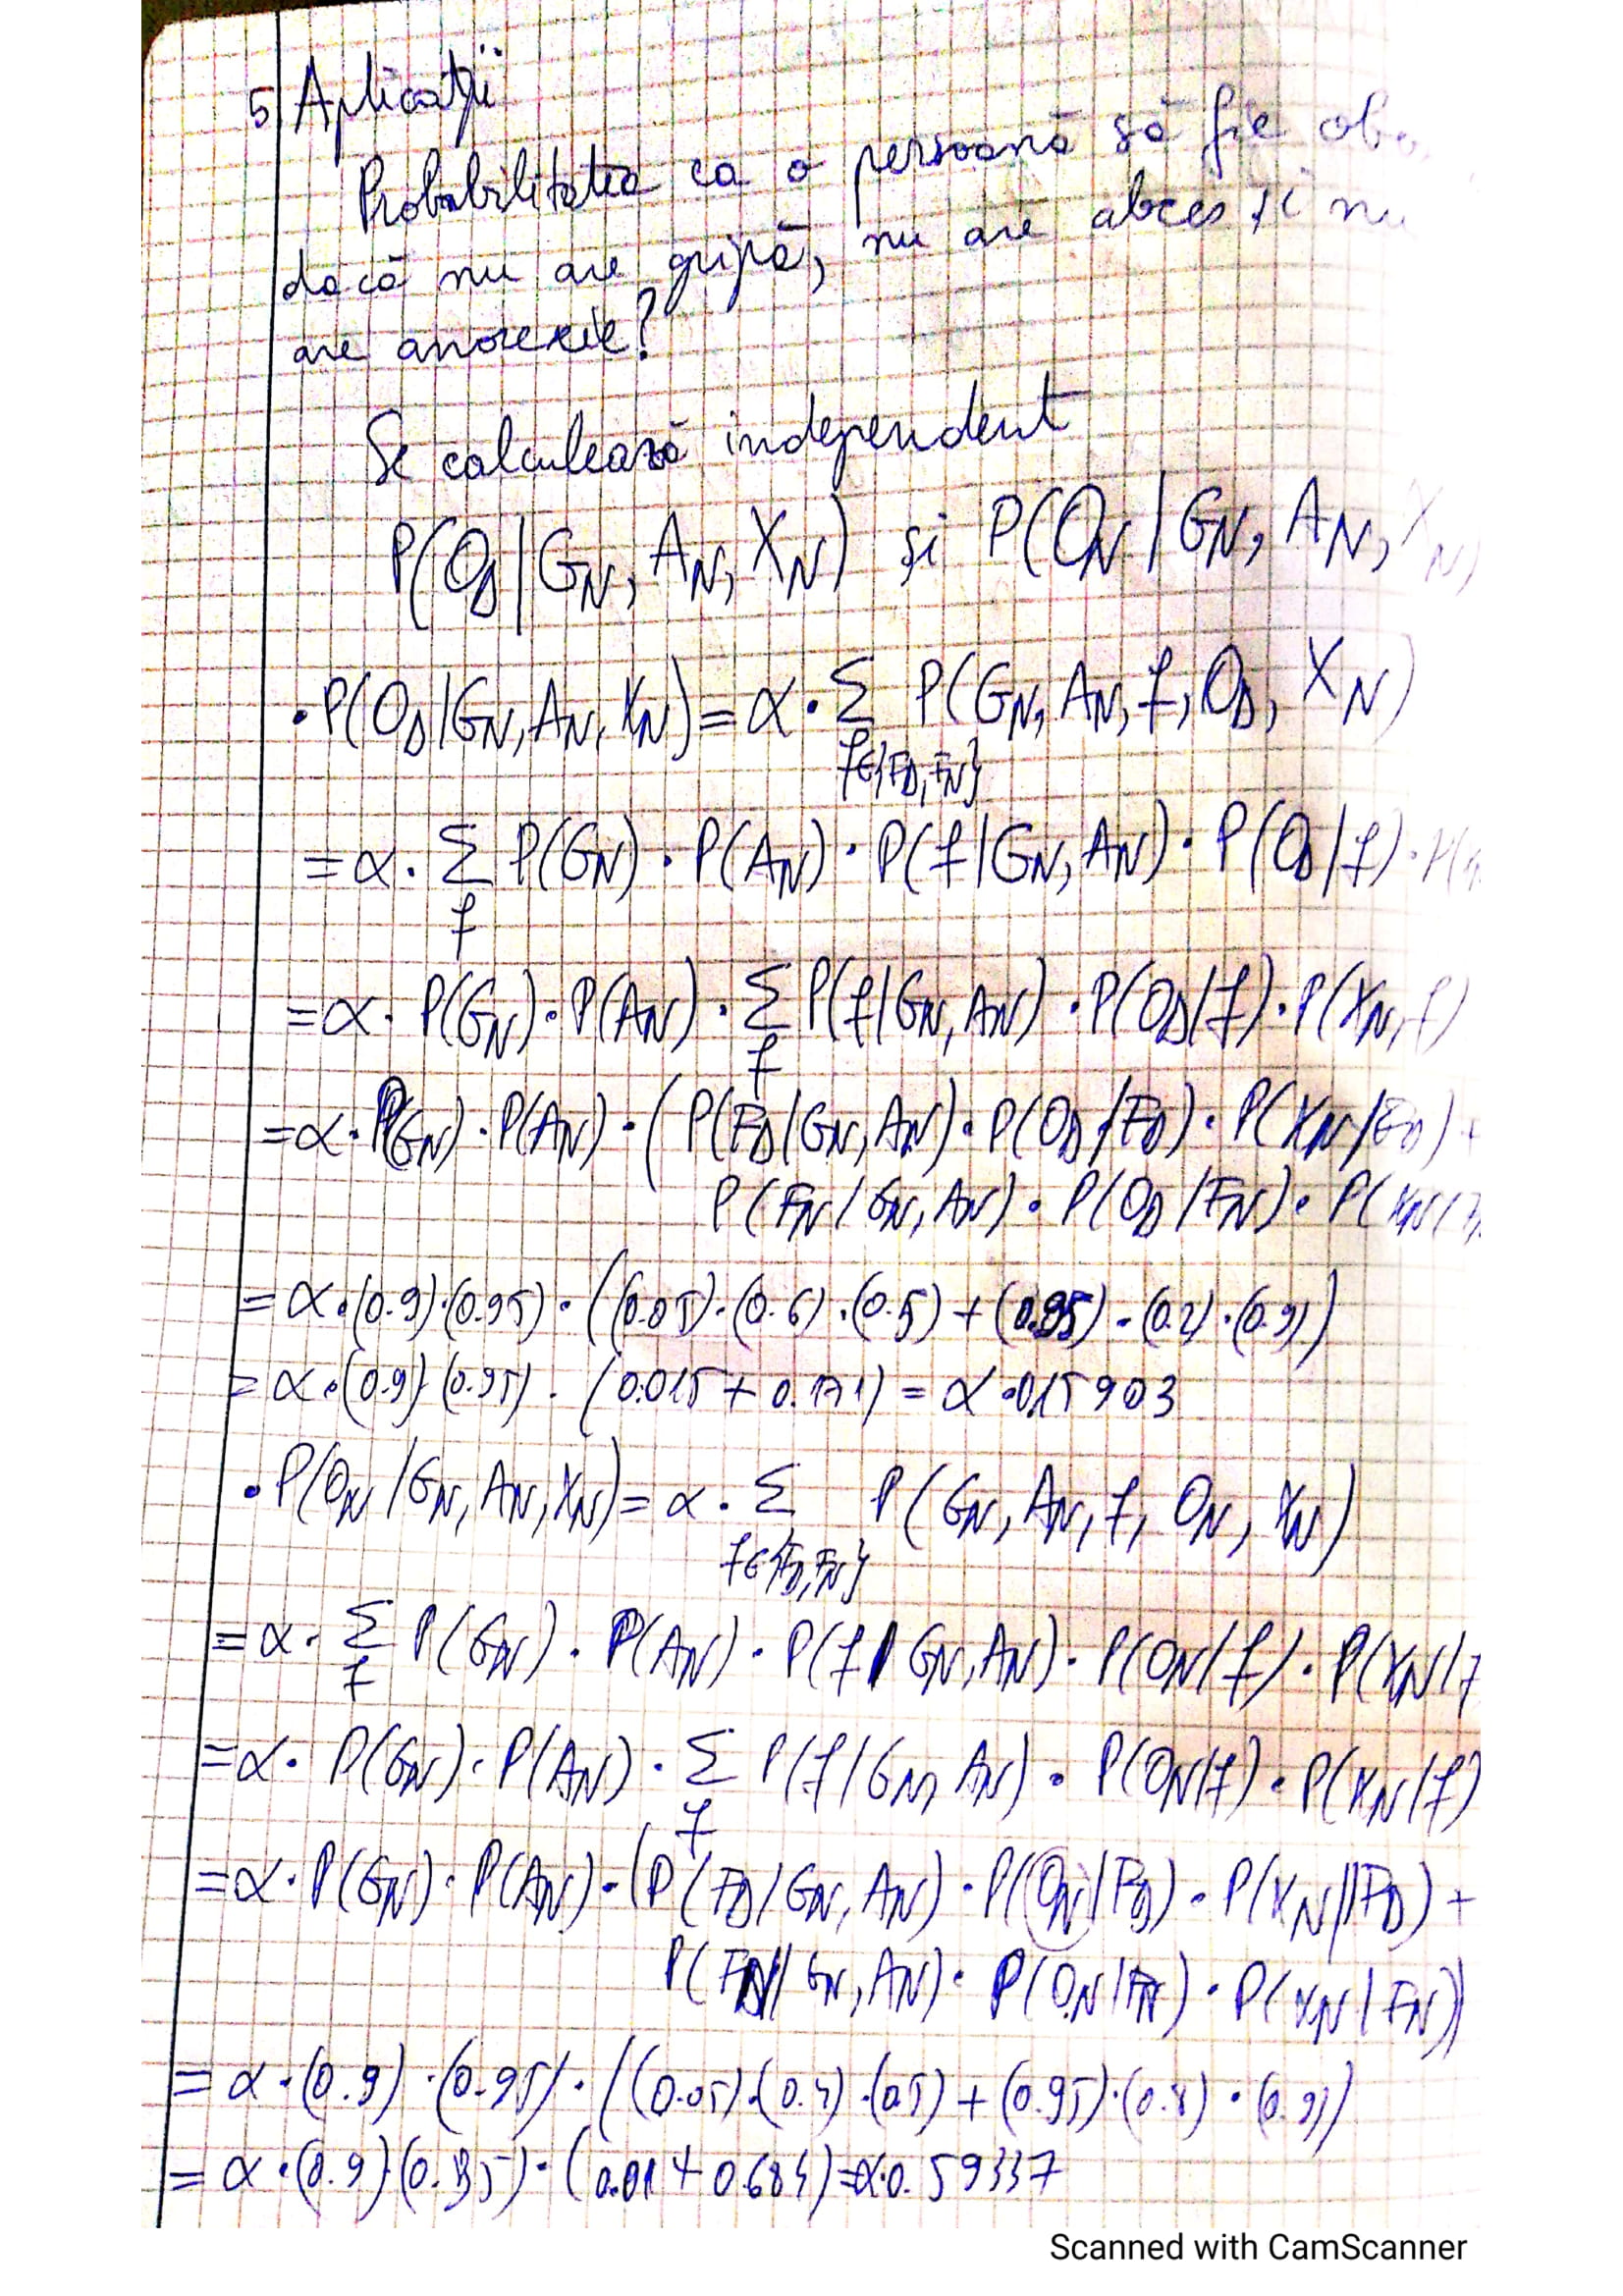 5) Aplicații
Probabilitatea ca o persoană să fie
dacă nu are gripă, nu are abces și nu
are anorexie?
Se calculează independent
P(O_D|G_N, A_N, X_N) și P(O_N|G_N, A_N, X_N)
• P(O_D|G_N, A_N, X_N) = α · Σ P(G_N, A_N, f, O_D, X_N)
f∈{F_D, F_N}
= α · Σ P(G_N) · P(A_N) · P(f|G_N, A_N) · P(O_D|f) ·
f
= α · P(G_N) · P(A_N) · Σ P(f|G_N, A_N) · P(O_D|f) · P(X_N, f)
f
= α · P(G_N) · P(A_N) · (P(F_D|G_N, A_N) · P(O_D|F_D) · P(X_N|F_D) +
P(F_N|G_N, A_N) · P(O_D|F_N) · P(X_N|
= α · (0.9) · (0.95) · ((0.05) · (0.6) · (0.5) + (0.95) · (0.2) · (0.9))
= α · (0.9) (0.95) · (0.015 + 0.171) = α · 0.15903
• P(O_N|G_N, A_N, X_N) = α · Σ P(G_N, A_N, f, O_N, X_N)
f∈{F_D, F_N}
= α · Σ P(G_N) · P(A_N) · P(f|G_N, A_N) · P(O_N|f) · P(X_N|f
f
= α · P(G_N) · P(A_N) · Σ P(f|G_N, A_N) · P(O_N|f) · P(X_N|f)
f
= α · P(G_N) · P(A_N) · (P(F_D|G_N, A_N) · P(O_N|F_D) · P(X_N||F_D) +
P(F_N|G_N, A_N) · P(O_N|F_N) · P(X_N|F_N))
= α · (0.9) · (0.95) · ((0.05) · (0.4) · (0.5) + (0.95) · (0.8) · (0.9))
= α · (0.9) (0.95) · (0.01 + 0.684) = α · 0.59337
Scanned with CamScanner